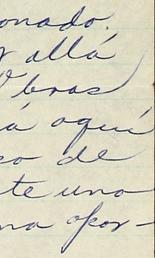 onado.
r allá
bras
á aquí
so de
te uno
na opor-